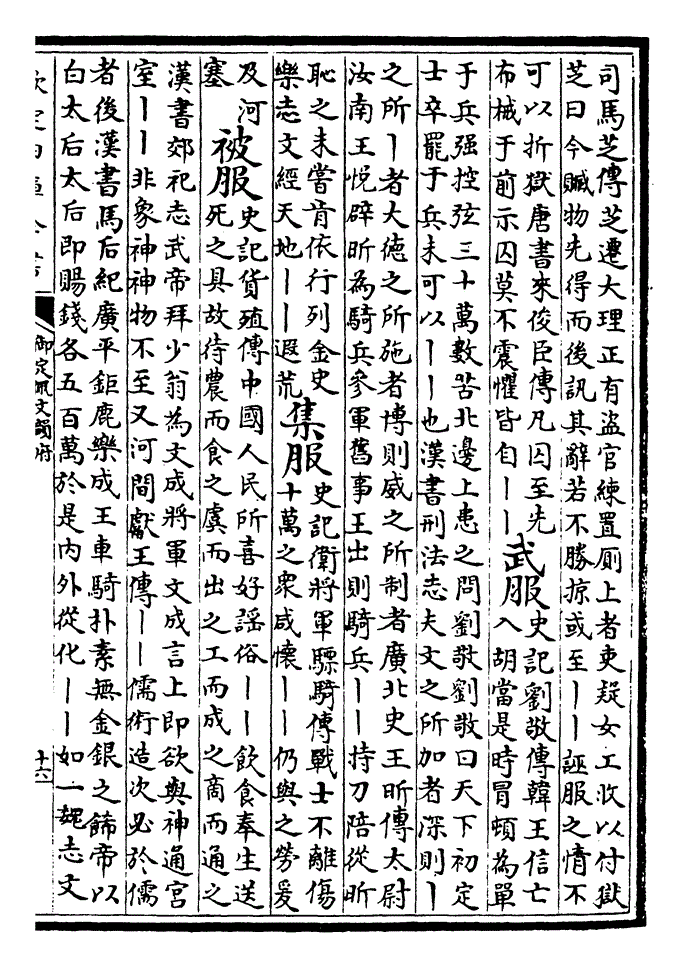 司馬芝傳芝遷大理正有盜官練置厠上者吏疑女工收以付獄
芝曰今贓物先得而後訊其辭若不勝掠或至丨丨誣服之情不
可以折獄唐書來俊臣傳凡囚至先
布械于前示囚莫不震懼皆自丨丨
武服
史記劉敬傳韓王信亡
入胡當是時冒頓為單
于兵强控弦三十萬數苦北邊上患之問劉敬劉敬曰天下初定
士卒罷于兵未可以丨丨也漢書刑法志夫文之所加者深則丨
之所丨者大德之所施者博則威之所制者廣北史王昕傳太尉
汝南王悅辟昕為騎兵參軍舊事王出則騎兵丨丨持刀陪從昕
恥之未嘗肯依行列金史
樂志文經天地丨丨遐荒
集服
史記衛將軍驃騎傳戰士不離傷
十萬之衆咸懷丨丨仍與之勞爰
及河
塞
被服
史記貨殖傳中國人民所喜好謠俗丨丨飲食奉生送
死之具故待農而食之虞而出之工而成之商而通之
漢書郊祀志武帝拜少翁為文成將軍文成言上即欲與神通宮
室丨丨非象神神物不至又河間獻王傳丨丨儒術造次必於儒
者後漢書馬后紀廣平鉅鹿樂成王車騎扑素無金銀之飾帝以
白太后太后即賜錢各五百萬於是内外從化丨丨如一魏志文
欽定四庫全書
御定佩文韻府
十六